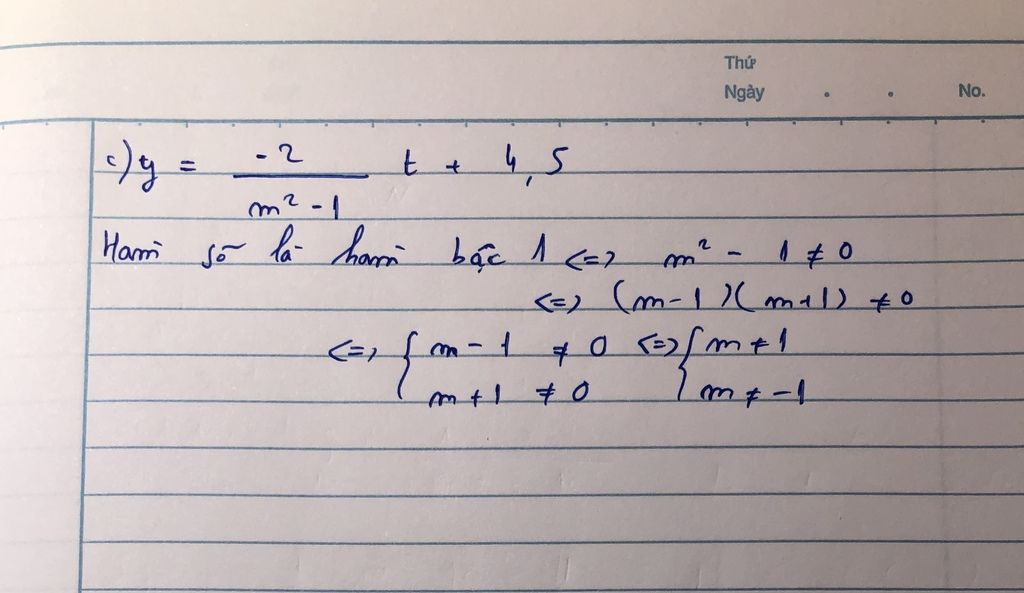 Thứ
Ngày . . No.
c) y = -2 / m² - 1 t + 4,5
Hàm số là hàm bậc 1 <=> m² - 1 ≠ 0
<=> (m-1)(m+1) ≠ 0
<=> { m - 1 ≠ 0 <=> { m ≠ 1
m + 1 ≠ 0 m ≠ -1